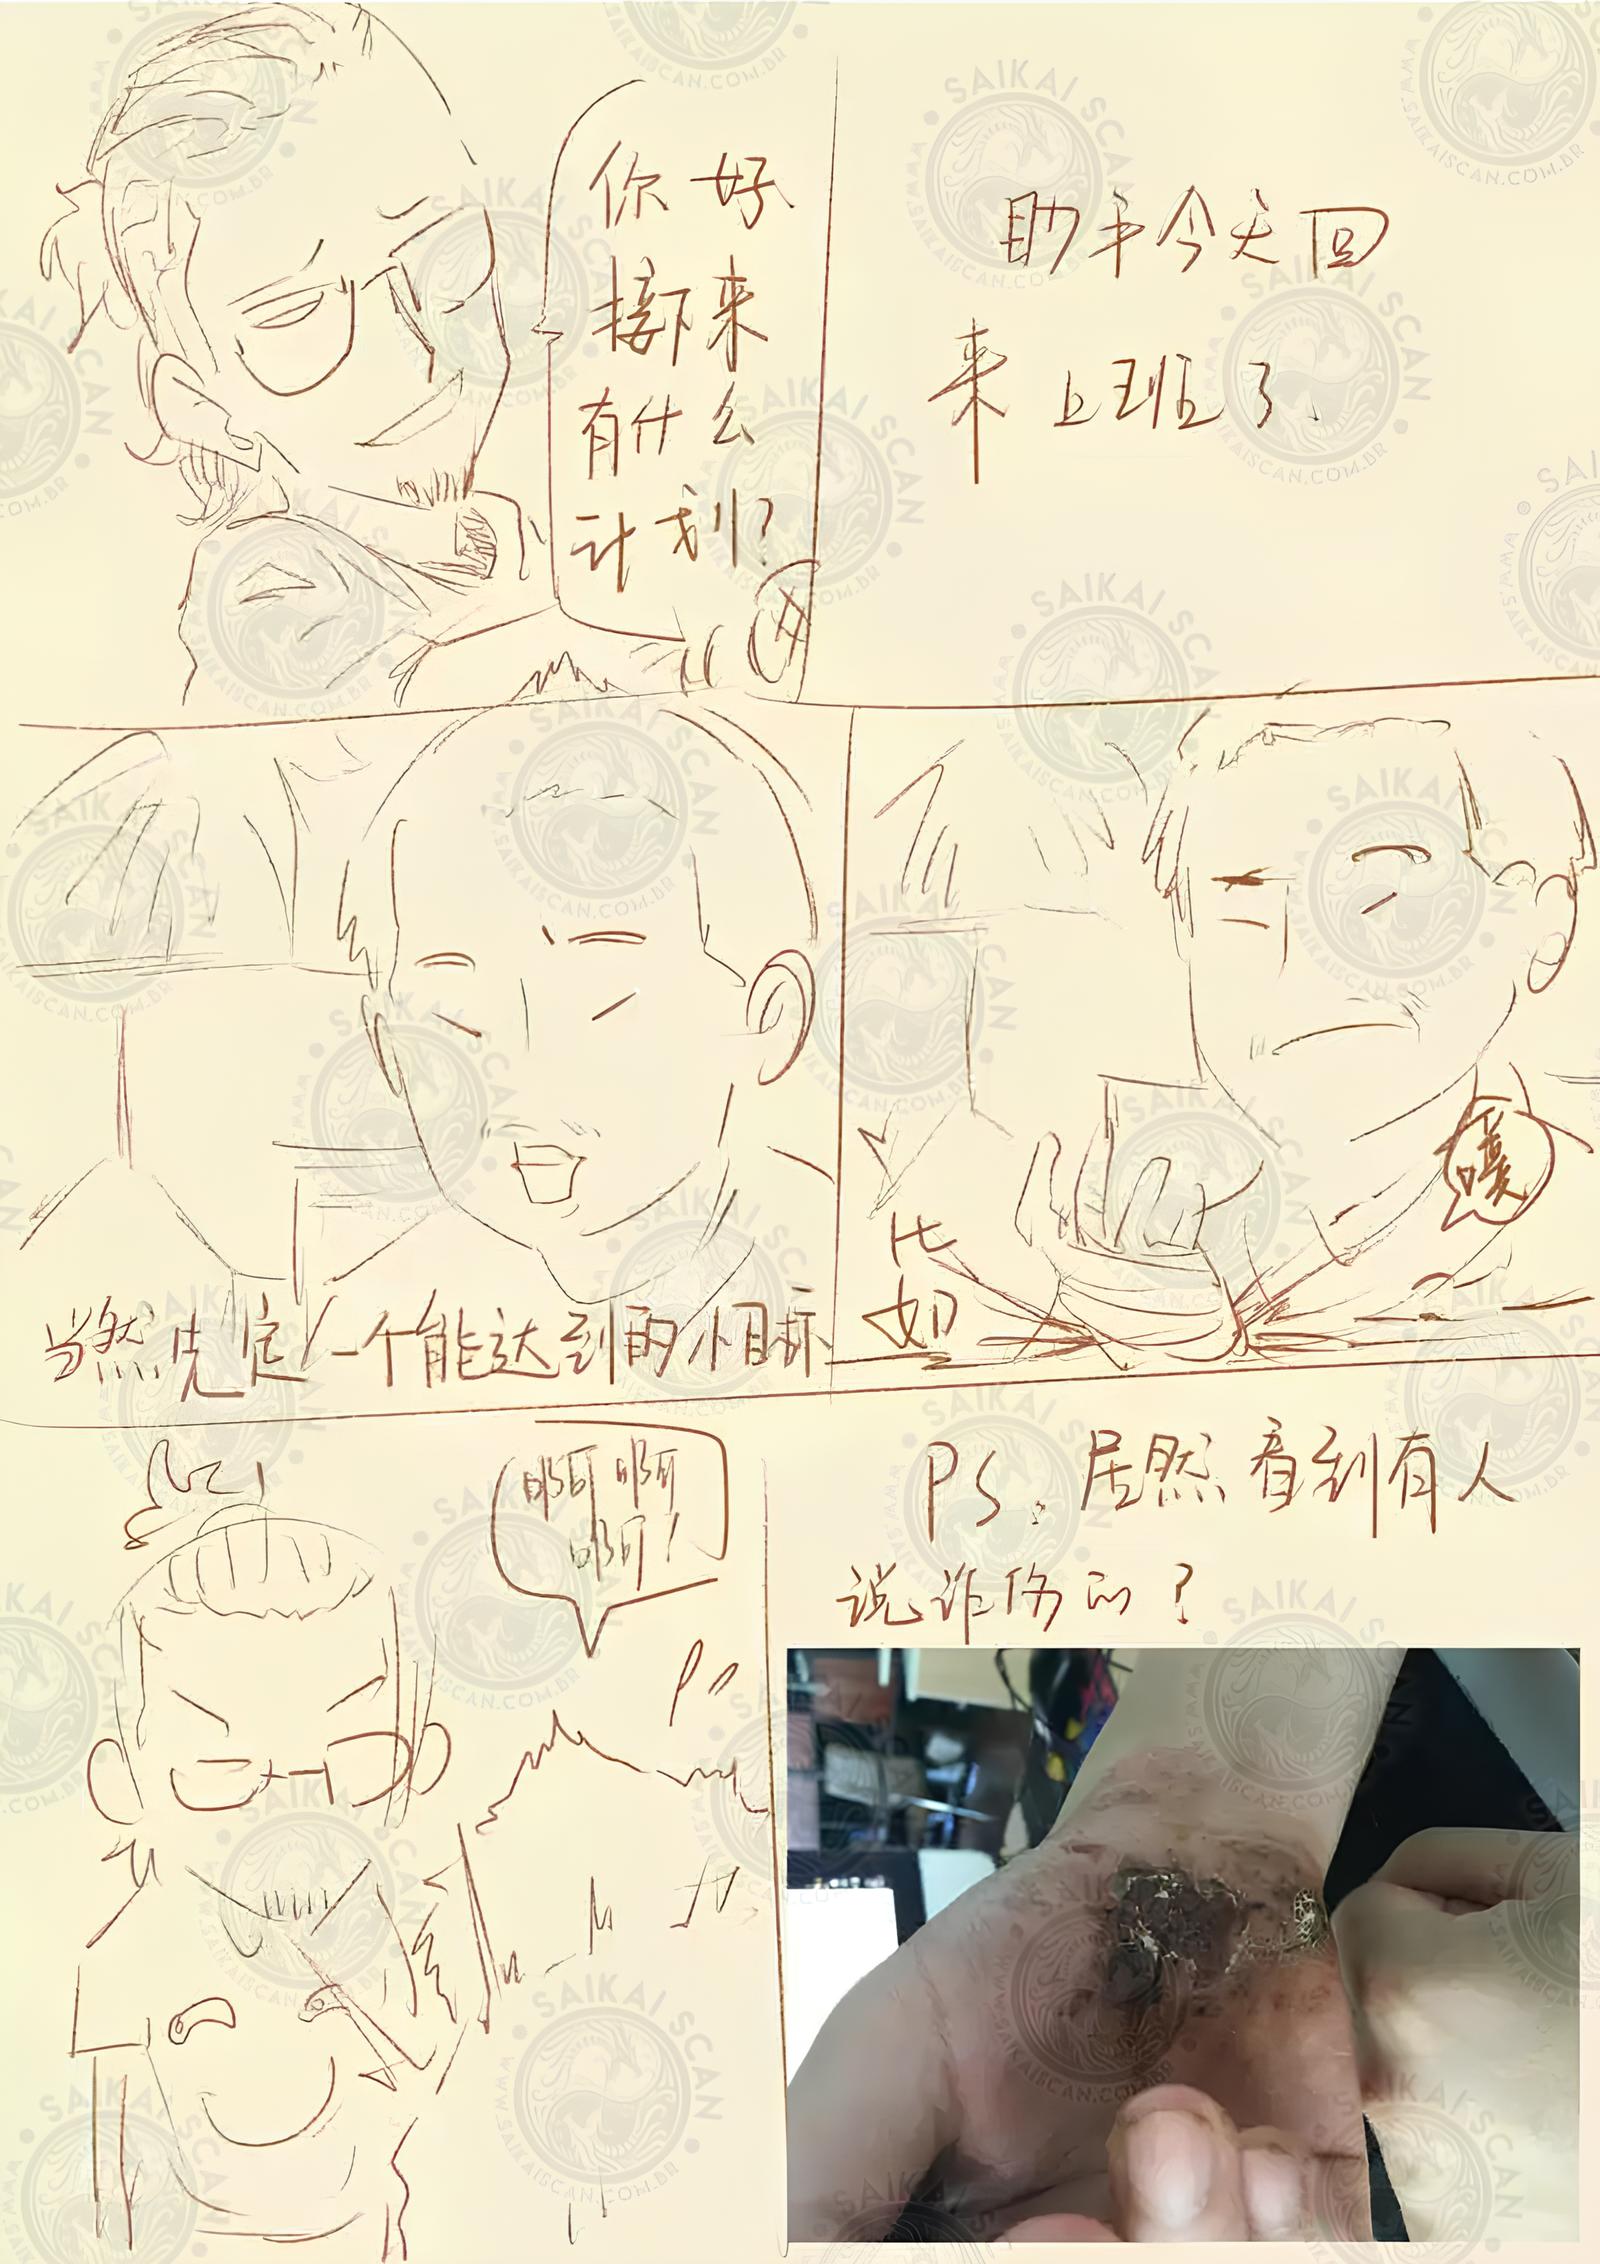 你好
接下来
有什么
计划?
助手今天回
来上班了.
当然先定个一个能达到的小目标
比
如
嗯
啊啊
啊!
PS. 居然看到有人
说诈伤的?
SAIKAI SCAN
WWW.SAIKAISCAN.COM.BR